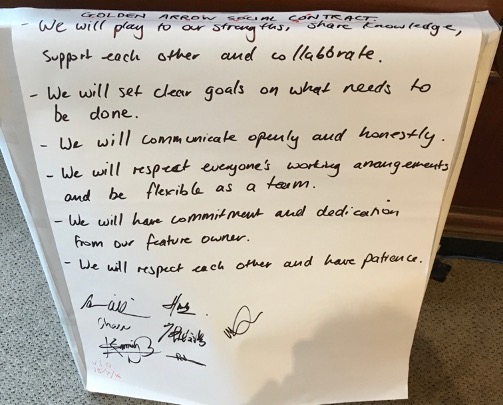 GOLDEN ARROW SOCIAL CONTRACT.
- We will play to our strengths, share knowledge,
support each other and collabbrate.
- We will set clear goals on what needs to
be done.
- We will communicate openly and honestly.
- We will respect everyone's working arrangements
and be flexible as a team.
- We will have commitment and dedication
from our feature owner.
- We will respect each other and have patience.